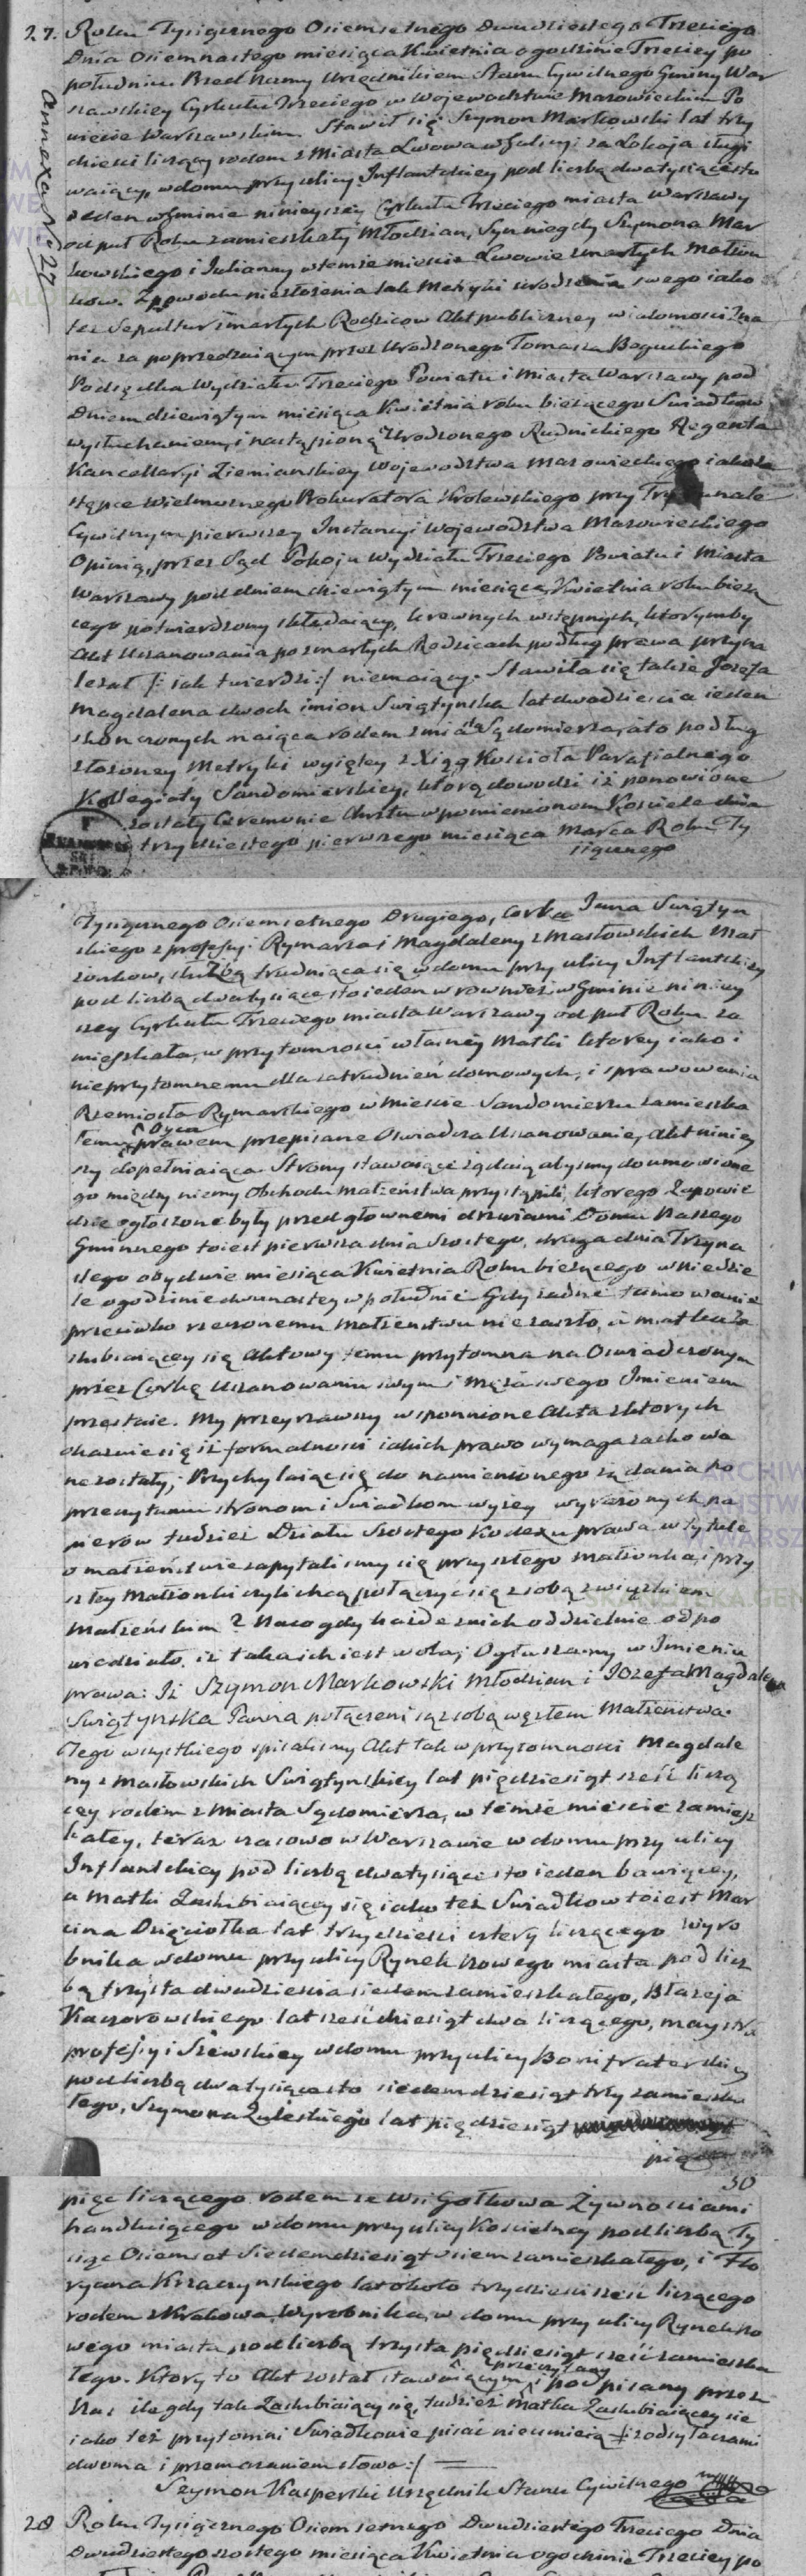 27. Roku Tysiącznego Osiemsetnego Dwudziestego Trzeciego
Dnia Osiemnastego miesiąca Kwietnia o godzinie Trzeciey po
południu. Przed Namy Urzędnikiem Stanu Cywilnego Gminy War
szawskiey Cyrkułu Trzeciego w Wojewodztwie Mazowieckim Po
wiecie Warszawskim. Stawił się Szymon Markowski lat trzy
dzieści liczący rodem z Miasta Lwowa w Galicyi za Lokaja sługi
waiący, w domu przy ulicy Inflantskiey pod liczbą dwatysiącesto
ieden w Gminie ninieyszey Cyrkułu Trzeciego miasta Warszawy
od puł Roku zamieszkały Młodzian, Syn niegdy Szymona Mar
kowskiego i Julianny w temże mieście Lwowie zmarłych Małżon
kow. Z powodu niezłożenia tak Metryki urodzenia swego iako
też Sepultur zmarłych Rodzicow Akt publiczney wiadomości Zna
nia za poprzedzaiącym przez Urodzonego Tomasza Boguckiego
Podsędka Wydziału Trzeciego Powiatu i Miasta Warszawy pod
Dniem dziewiątym miesiąca Kwietnia roku bieżącego Swiadkow
wysłuchaniem, i nastąpioną Urodzonego Rudnickiego Regenta
Kancellaryi Ziemianskiey Wojewodztwa Mazowieckiego iako Za
stępce Wielmoznego Prokuratora Krolewskiego przy Trybunale
Cywilnym pierwszey Instancyi Wojewodztwa Mazowieckiego
Opinią, przez Sąd Pokoju Wydziału Trzeciego Powiatu i Miasta
Warszawy pod dniem dziewiątym miesiąca Kwietnia roku bieżą
cego potwierdzony składaiący, krewnych wstępnych, ktorymby
Akt Uszanowania po zmarłych Rodzicach podług prawa przyna
leżał /: iak twierdzi :/ niemaiący. Stawiła się także Jozefa
Magdalena dwoch imion Swiątynska lat dwadzieścia ieden
skończonych maiąca rodem z miasta Sędomierza, iato podług
złożoney Metryki wyiętey z Xiąg Kościoła Parafialnego
Kollegiaty Sandomierskiey, ktorą dowodzi iż ponowione
zostały Ceremonie Chrztu w pomienionem Kościele dnia
trzydziestego pierwszego miesiąca Marca Roku Ty
siącznego
Annexa No 27
Tysiącznego Osiemsetnego Drugiego, Corka Jana Swiątyn
skiego z profesyi Rymarza i Magdaleny z Masłowskich Mał
żonkow, służbą trudniąca się w domu przy ulicy Inflantskiey
pod liczbą dwatysiące sto ieden w rownież w Gminie niniey
szey Cyrkułu Trzeciego miasta Warszawy od puł Roku za
mieszkała, w przytomności własney Matki ktorey iako i
nieprzytomnemu dla zatrudnień domowych, i sprawowania
Rzemiosła Rymarskiego w Mieście Sandomierzu zamieszka
łemu Oycu prawem przepisane Oswiadcza Uszanowanie, Akt niniey
szy dopełniaiąca. Strony stawaiące żądaią abysmy do umowione
go między niemy Obchodu małżeństwa przystąpili, ktorego Zapowie
dzie ogłoszone były przed głownemi drzwiami Domu Naszego
Gminnego to iest pierwsza dnia Szostego, druga dnia Trzyna
stego obydwie miesiąca Kwietnia Roku bieżącego w niedzie
le o godzinie dwunastey w południe Gdy żadne tamowanie
przeciwko rzeczonemu Małżeństwu nie zaszło, a matka Za
slubiaiącey się Aktowy temu przytomna na Oswiadczonym
przez Corkę Uszanowaniu swym i męża swego Imieniem
przestaie. My przeyrzawszy wspomnione Akta z ktorych
okazuie się iż formalności iakich prawo wymaga zachowa
ne zostały; Przychylaiąc się do namienionego żądania po
przeczytaniu stronom i Swiadkom wyżey wyrażonych pa
pierow tudzież Działu Szostego Kodexu prawa w tytule
o małżeństwie zapytalismy się przyszłego małżonka i przy
szłey małżonki czyli chcą połączyć się z sobą związkiem
Małżeńskim? Naco gdy każde znich oddzielnie odpo
wiedziało, iż taka ich iest wola; Ogłaszamy w Imieniu
prawa: Iż Szymon Markowski Młodzian i Jozefa Magdalena
Swiątynska Panna połączeni są z sobą węzłem Małżeństwa.
Tego wszystkiego spisalismy Akt tak w przytomności Magdale
ny z Masłowskich Swiątynskiey lat pięćdziesiąt sześć liczą
cey rodem z Miasta Sędomierza, w temże mieście zamiesz
kałey, teraz czasowo w Warszawie w domu przy ulicy
Inflantskiey pod liczbą dwatysiące sto ieden bawiącey,
a Matki Zaslubiaiącey się iako też Swiadkow to iest Mar
cina Dzięciołka lat trzydzieści cztery liczącego Wyro
bnika w domu przy ulicy Rynek Nowego miasta pod licz
bą trzysta dwadzieścia siedem zamieszkałego, Błażeja
Kaczorowskiego lat sześćdziesiąt dwa liczącego, maystra
profesyi Szewskiey w domu przy ulicy Bonifraterskiey
pod liczbą dwatysiącesto siedemdziesiąt trzy zamieszka
łego, Szymona Zaleskiego lat pięćdziesiąt
pięć
30
pięć liczącego rodem ze Wsi Gołkowa Żywnosciami
handluiącego w domu przy ulicy Kościelney pod liczbą Ty
siąc Osiemset Siedemdziesiąt osiem zamieszkałego, i Flo
ryana Krzaczynskiego lat około trzydzieści sześć liczącego
rodem z Krakowa Wyrobnika, w domu przy ulicy Rynek No
wego miasta pod liczbą trzysta pięćdziesiąt sześć zamieszka
łego. Ktory to Akt został stawaiącym przeczytany i podpisany przez
Nas ile gdy tak Zaslubiaiący się, tudzież Matka Zaslubiaiącey się
iako też przytomni Swiadkowie pisać nieumieią /: z odsyłaczami
dwoma i przemazaniem słowa :/
Szymon Kasperski Urzędnik Stanu Cywilnego
28 Roku Tysiącznego Osiemsetnego Dwudziestego Trzeciego Dnia
Dwudziestego szostego miesiąca Kwietnia o godzinie Trzeciey po